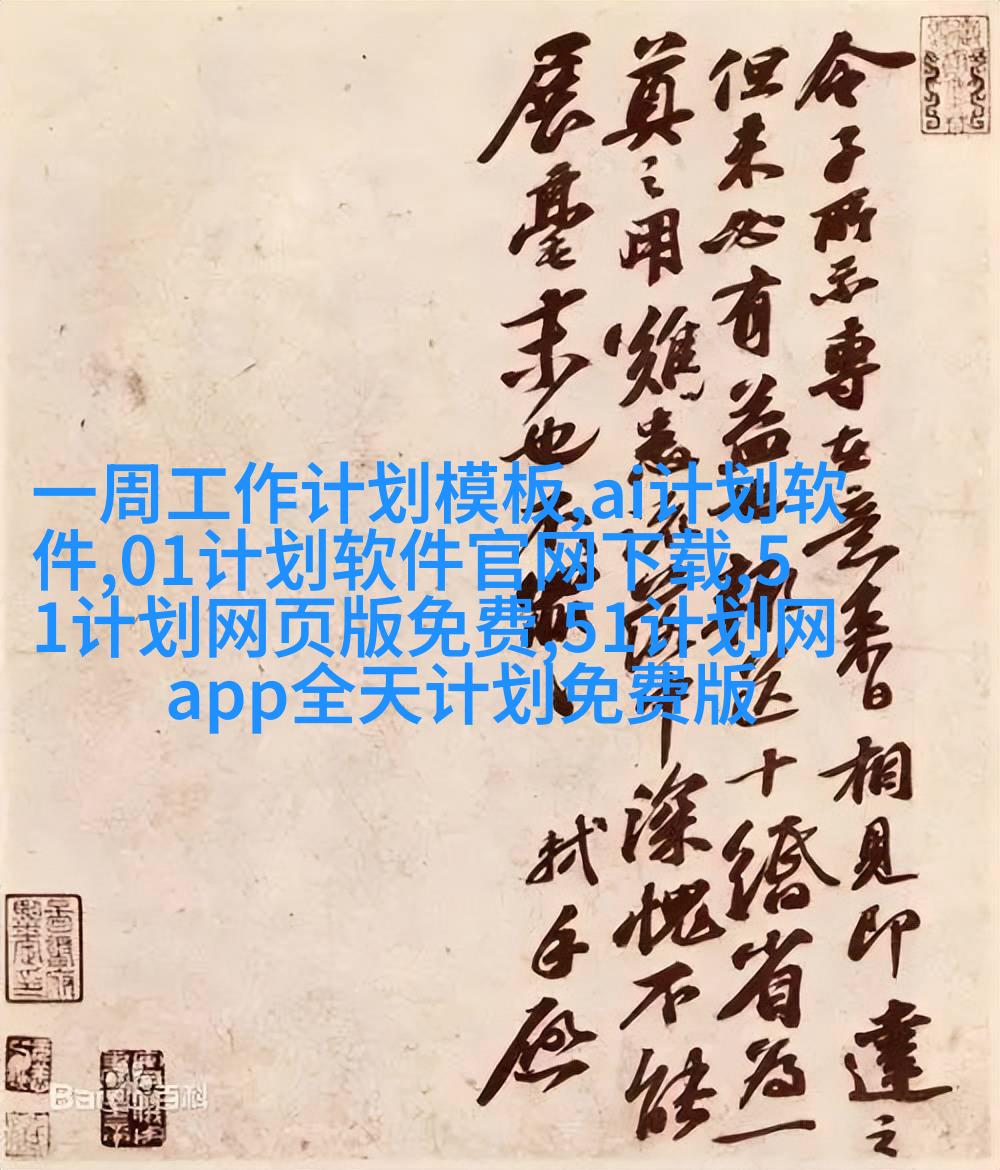 令子所示專在意來日相見即達之
但未必有益也 十緡省為一
奠之用雖 深愧不能
展毫末也
軾手啟
一周工作计划模板,ai计划软
件,01计划软件官网下载,5
1计划网页版免费,51计划网
app全天计划免费版
Baidu百科